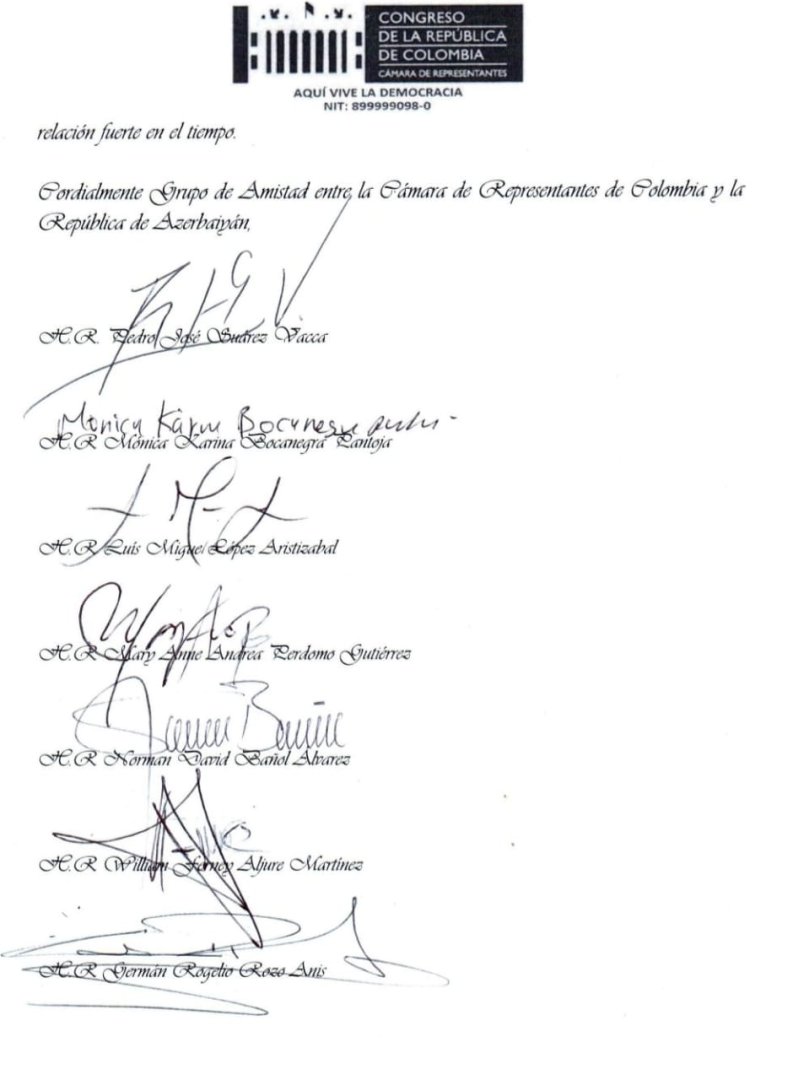 CONGRESO
DE LA REPÚBLICA
DE COLOMBIA
CÁMARA DE REPRESENTANTES
AQUÍ VIVE LA DEMOCRACIA
NIT: 899999098-0
relación fuerte en el tiempo.
Cordialmente Grupo de Amistad entre la Cámara de Representantes de Colombia y la
República de Azerbaiyán,
H.R. Pedro José Suárez Vacca
Monica Karina Bocanegra
H.R Mónica Karina Bocanegra Pantoja
H.R Luís Miguel López Aristizabal
H.R Mary Anne Andrea Perdomo Gutiérrez
H.R Norman David Bañol Alvarez
H.R William Ferney Aljure Martínez
H.R Germán Rogelio Rozo Anis